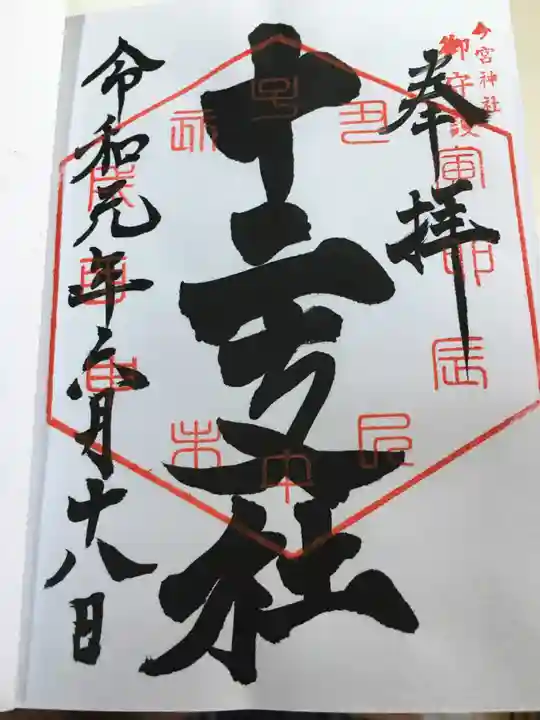 今宮神社
御守護
奉拝
十二支社
令和元年六月十八日
子
丑
寅
卯
辰
巳
午
未
申
酉
戌
亥